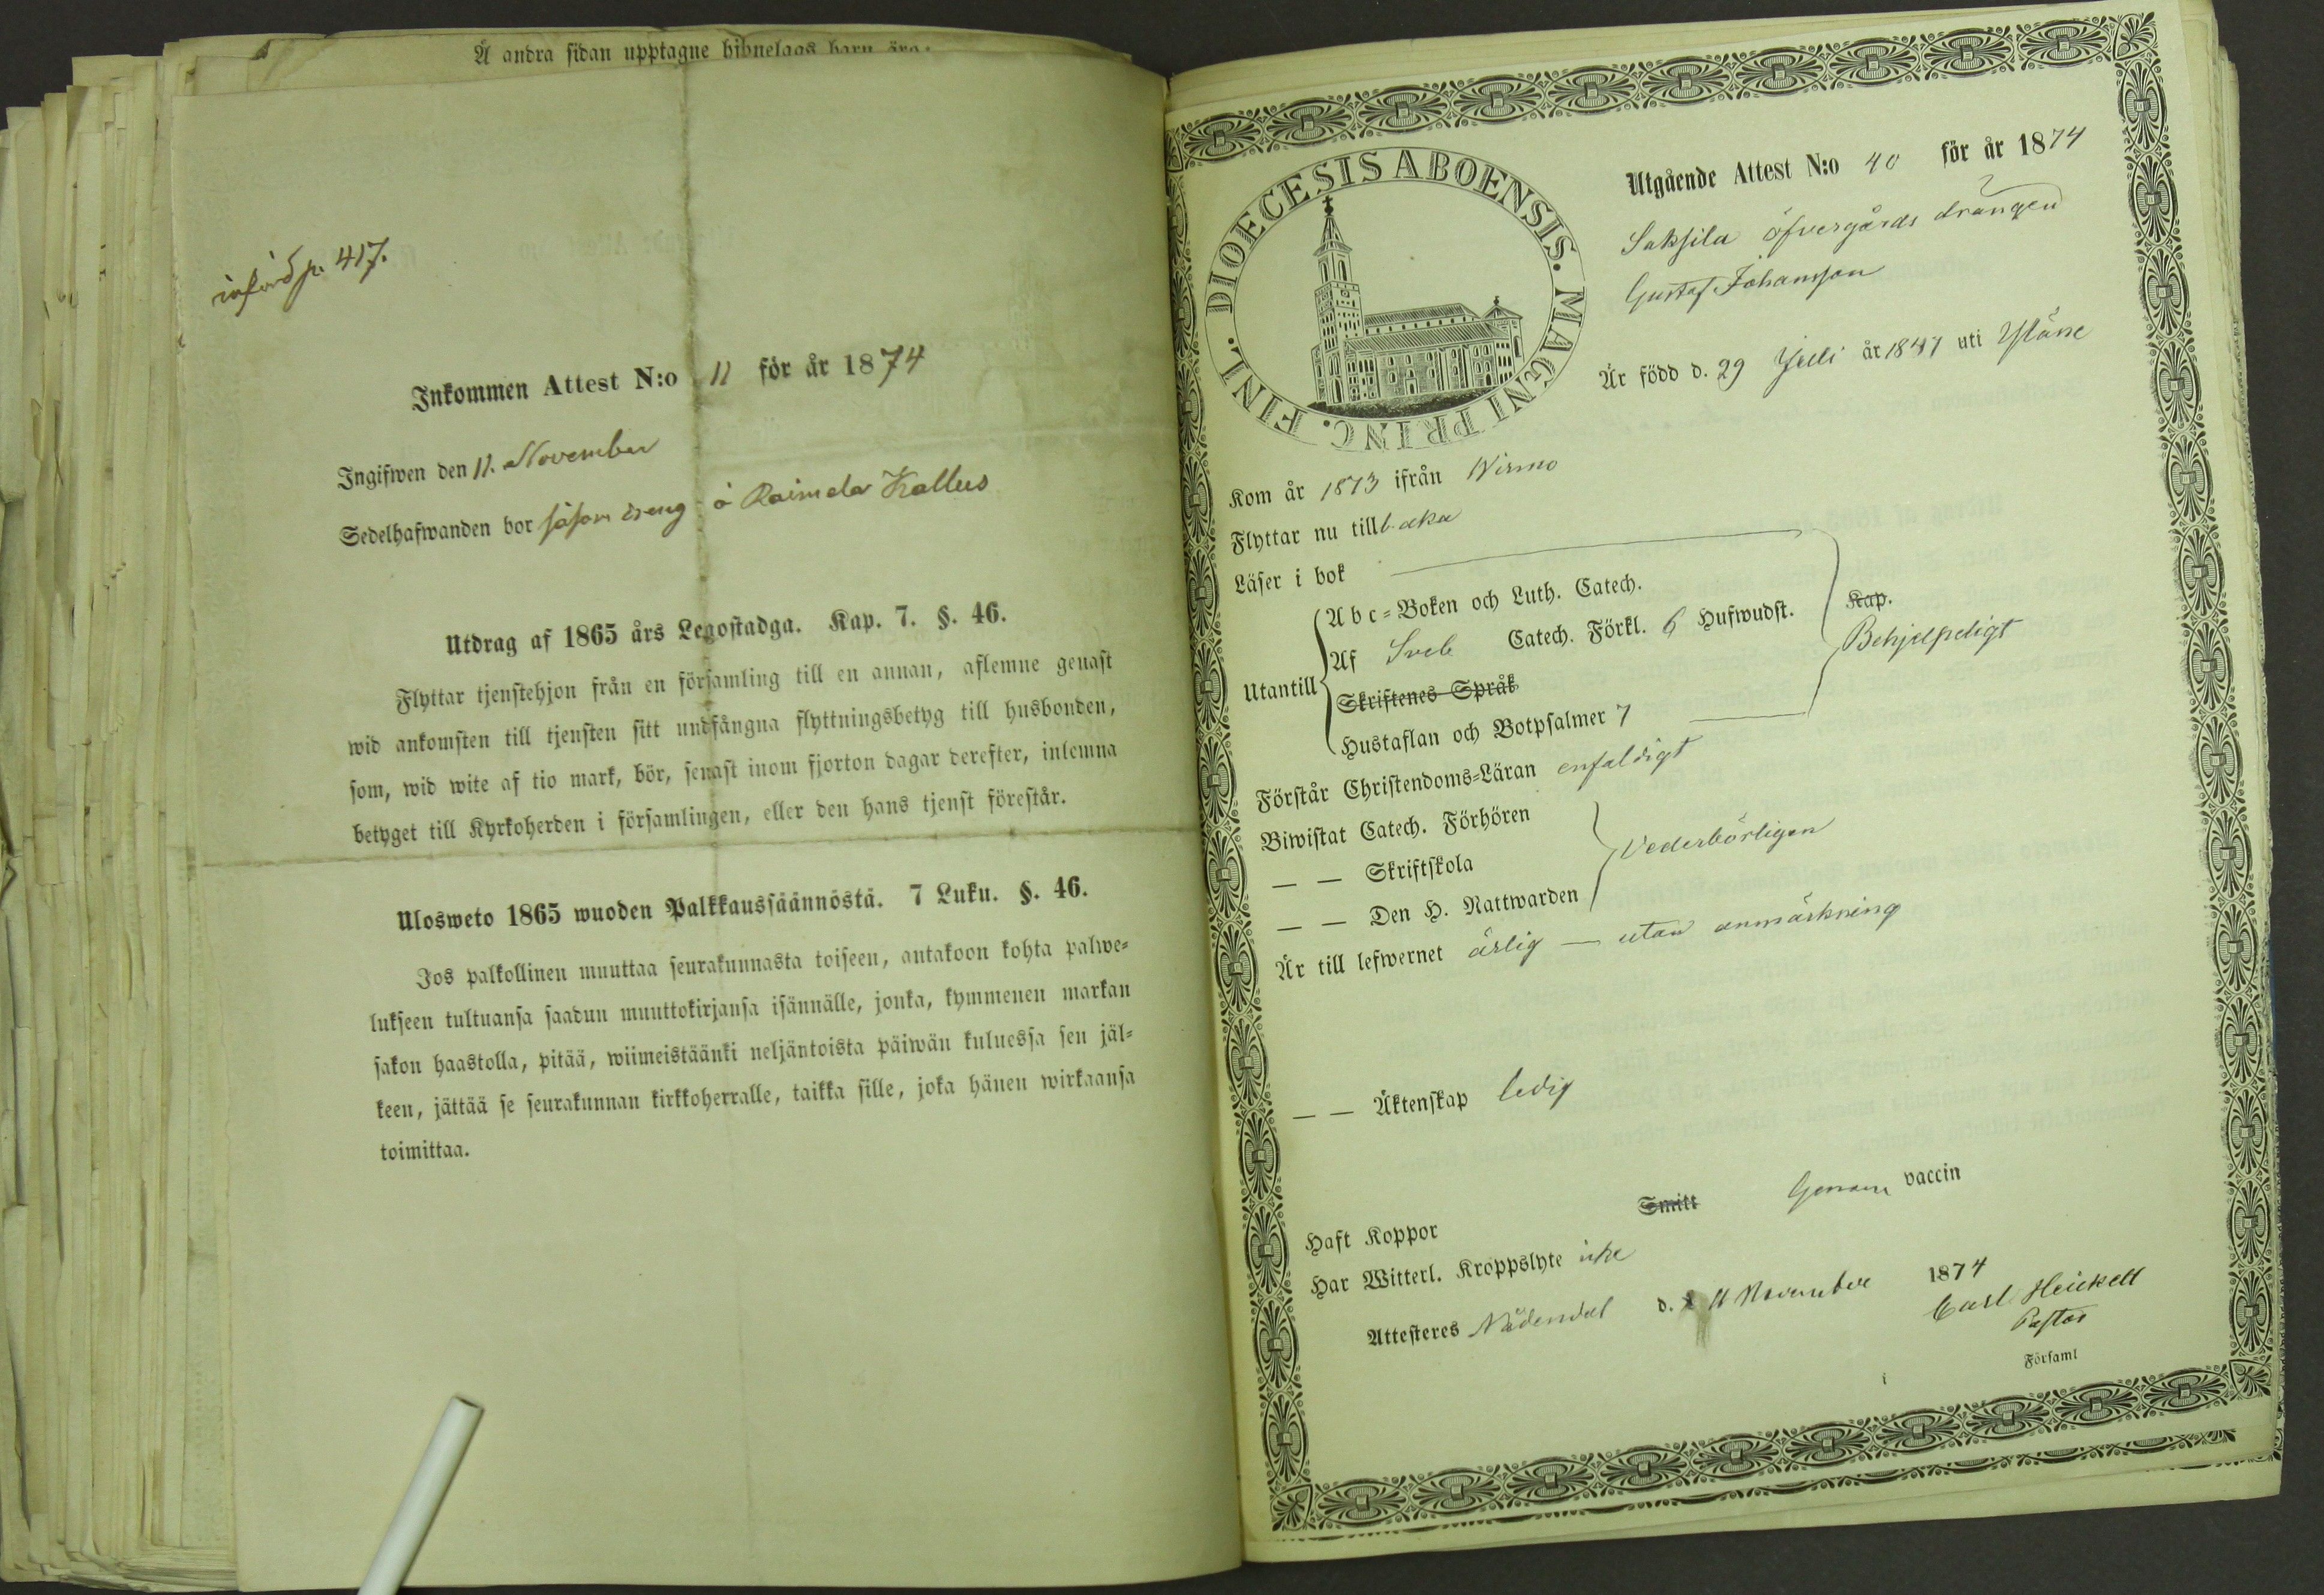 Å andra sidan upptagne hionelags barn äro:
införd p. 417.
Inkommen Attest N:o 11 för år 1874
Ingifwen den 11. November
Sedelhafwanden bor såsom dreng å Raimela Kallus
Utdrag af 1865 års Legostadga. Kap. 7. §. 46.
Flyttar tjenstehjon från en församling till en annan, aflemne genast
wid ankomsten till tjensten sitt undfångna flyttningsbetyg till husbonden,
som, wid wite af tio mark, bör, senast inom fjorton dagar derefter, inlemna
betyget till Kyrkoherden i församlingen, eller den hans tjenst förestår.
Ulosweto 1865 wuoden Palkkaussäännöstä. 7 Luku. §. 46.
Jos palkollinen muuttaa seurakunnasta toiseen, antakoon kohta palwe-
lukseen tultuansa saadun muuttokirjansa isännälle, jonka, kymmenen markan
sakon haastolla, pitää, wiimeistäänki neljäntoista päiwän kuluessa sen jäl-
keen, jättää se seurakunnan kirkkoherralle, taikka sille, joka hänen wirkaansa
toimittaa.
DIOECESIS ABOENSIS. MAGNI PRINC. FINL.
Utgående Attest N:o 40 för år 1874
Saksila öfvergårds drängen
Gustaf Johansson
Är född d. 29 Juli år 1847 uti Yläne
Kom år 1873 ifrån Wirmo
Flyttar nu tillbaka
Läser i bok
Utantill
A b c-Boken och Luth. Catech.
Af Sveb Catech. Förkl. 6 Hufwudst.
Skriftenes Språk
Hustaflan och Botpsalmer 7
Kap.
Behjelpeligt
Förstår Christendoms-Läran enfaldigt
Biwistat Catech. Förhören
— — Skriftskola
— — Den H. Nattwarden
Vederbörligen
Är till lefwernet ärlig — utan anmärkning
— — Äktenskap ledig
Haft Koppor Smitt Genom vaccin
Har Witterl. Kroppslyte icke
Attesteres Nådendal d. 11 November 1874
Carl Heickell
Pastor
i Församl